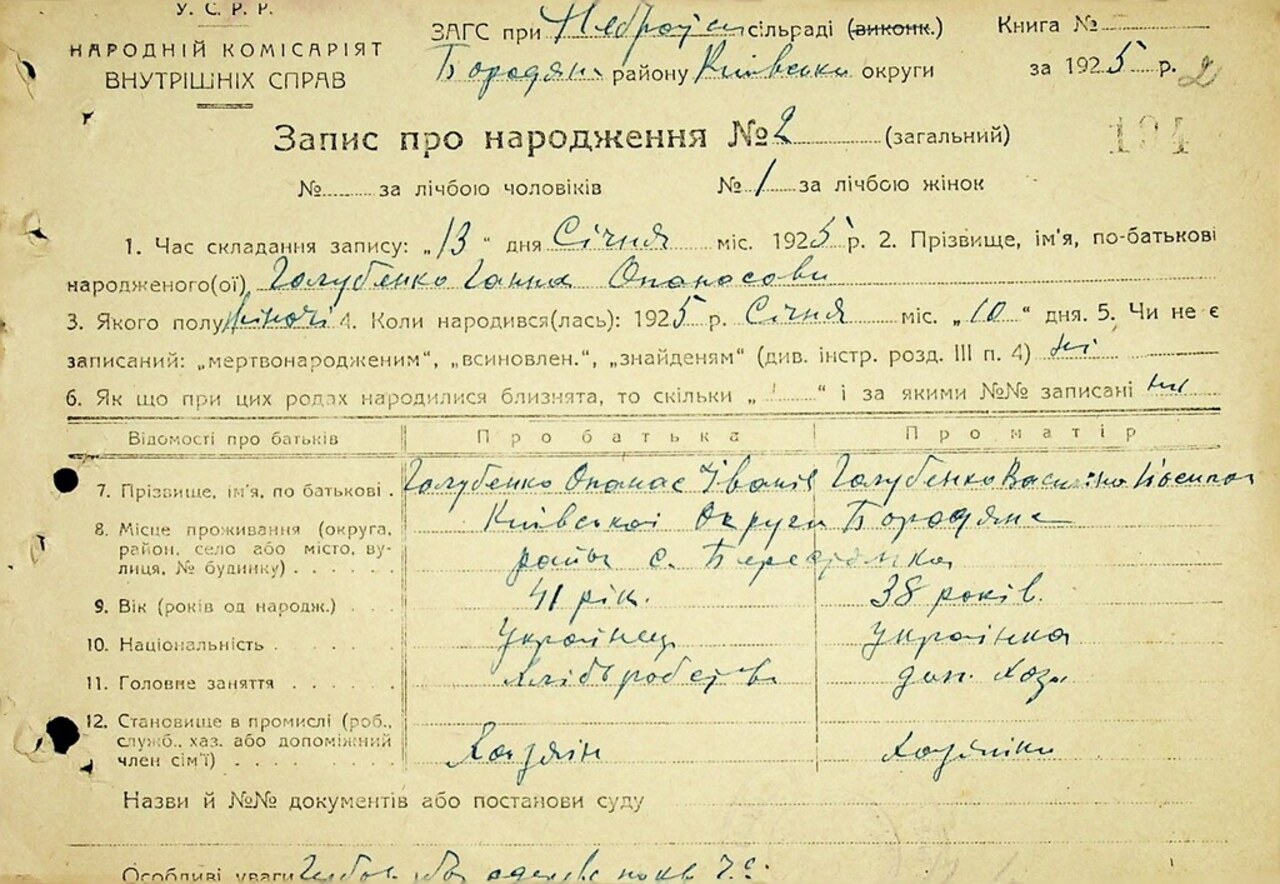 У. С. Р. Р.
НАРОДНІЙ КОМІСАРІЯТ
ВНУТРІШНІХ СПРАВ
ЗАГС при сільраді (виконк.)
Бородян. району Київської округи
Книга №
за 1925 р. 2
Запис про народження № 2 (загальний)
194
№ за лічбою чоловіків № 1 за лічбою жінок
1. Час складання запису: „13“ дня Січня міс. 1925 р. 2. Прізвище, ім'я, по-батькові
народженого(ої) Голубенко Ганна Опанасовн
3. Якого полу жіночі 4. Коли народився(лась): 1925 р. Січня міс. „10“ дня. 5. Чи не є
записаний: „мертвонародженим“, „всиновлен.“, „знайденям“ (див. інстр. розд. III п. 4) ні
6. Як що при цих родах народилися близнята, то скільки „ “ і за якими №№ записані ні
Відомості про батьків Про батька Про матір
7. Прізвище, ім'я, по батькові . Голубенко Опанас Іванів Голубенко Василина
8. Місце проживання (округа, район, село або місто, вулиця, № будинку) . . . . . . Київської Округи Бородянс
район с. Берестянка
9. Вік (років од народж.) . . . 41 рік. 38 років.
10. Національність . . . . . . Українець Українка
11. Головне заняття . . . . . . хліборобств дом. хоз.
12. Становище в промислі (роб., служб., хаз. або допоміжний член сім'ї) . . . . . . . . Хазяін Хазяінка
Назви й №№ документів або постанови суду
Особливі уваги